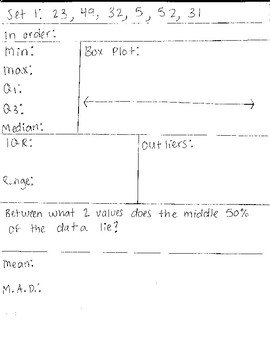 Set 1: 23, 49, 32, 5, 52, 31
in order:
Min:
max:
Q1:
Q3:
Median:
Box Plot:
IQR:
Range:
Outliers:
Between what 2 values does the middle 50%
of the data lie?
mean:
M.A.D.: